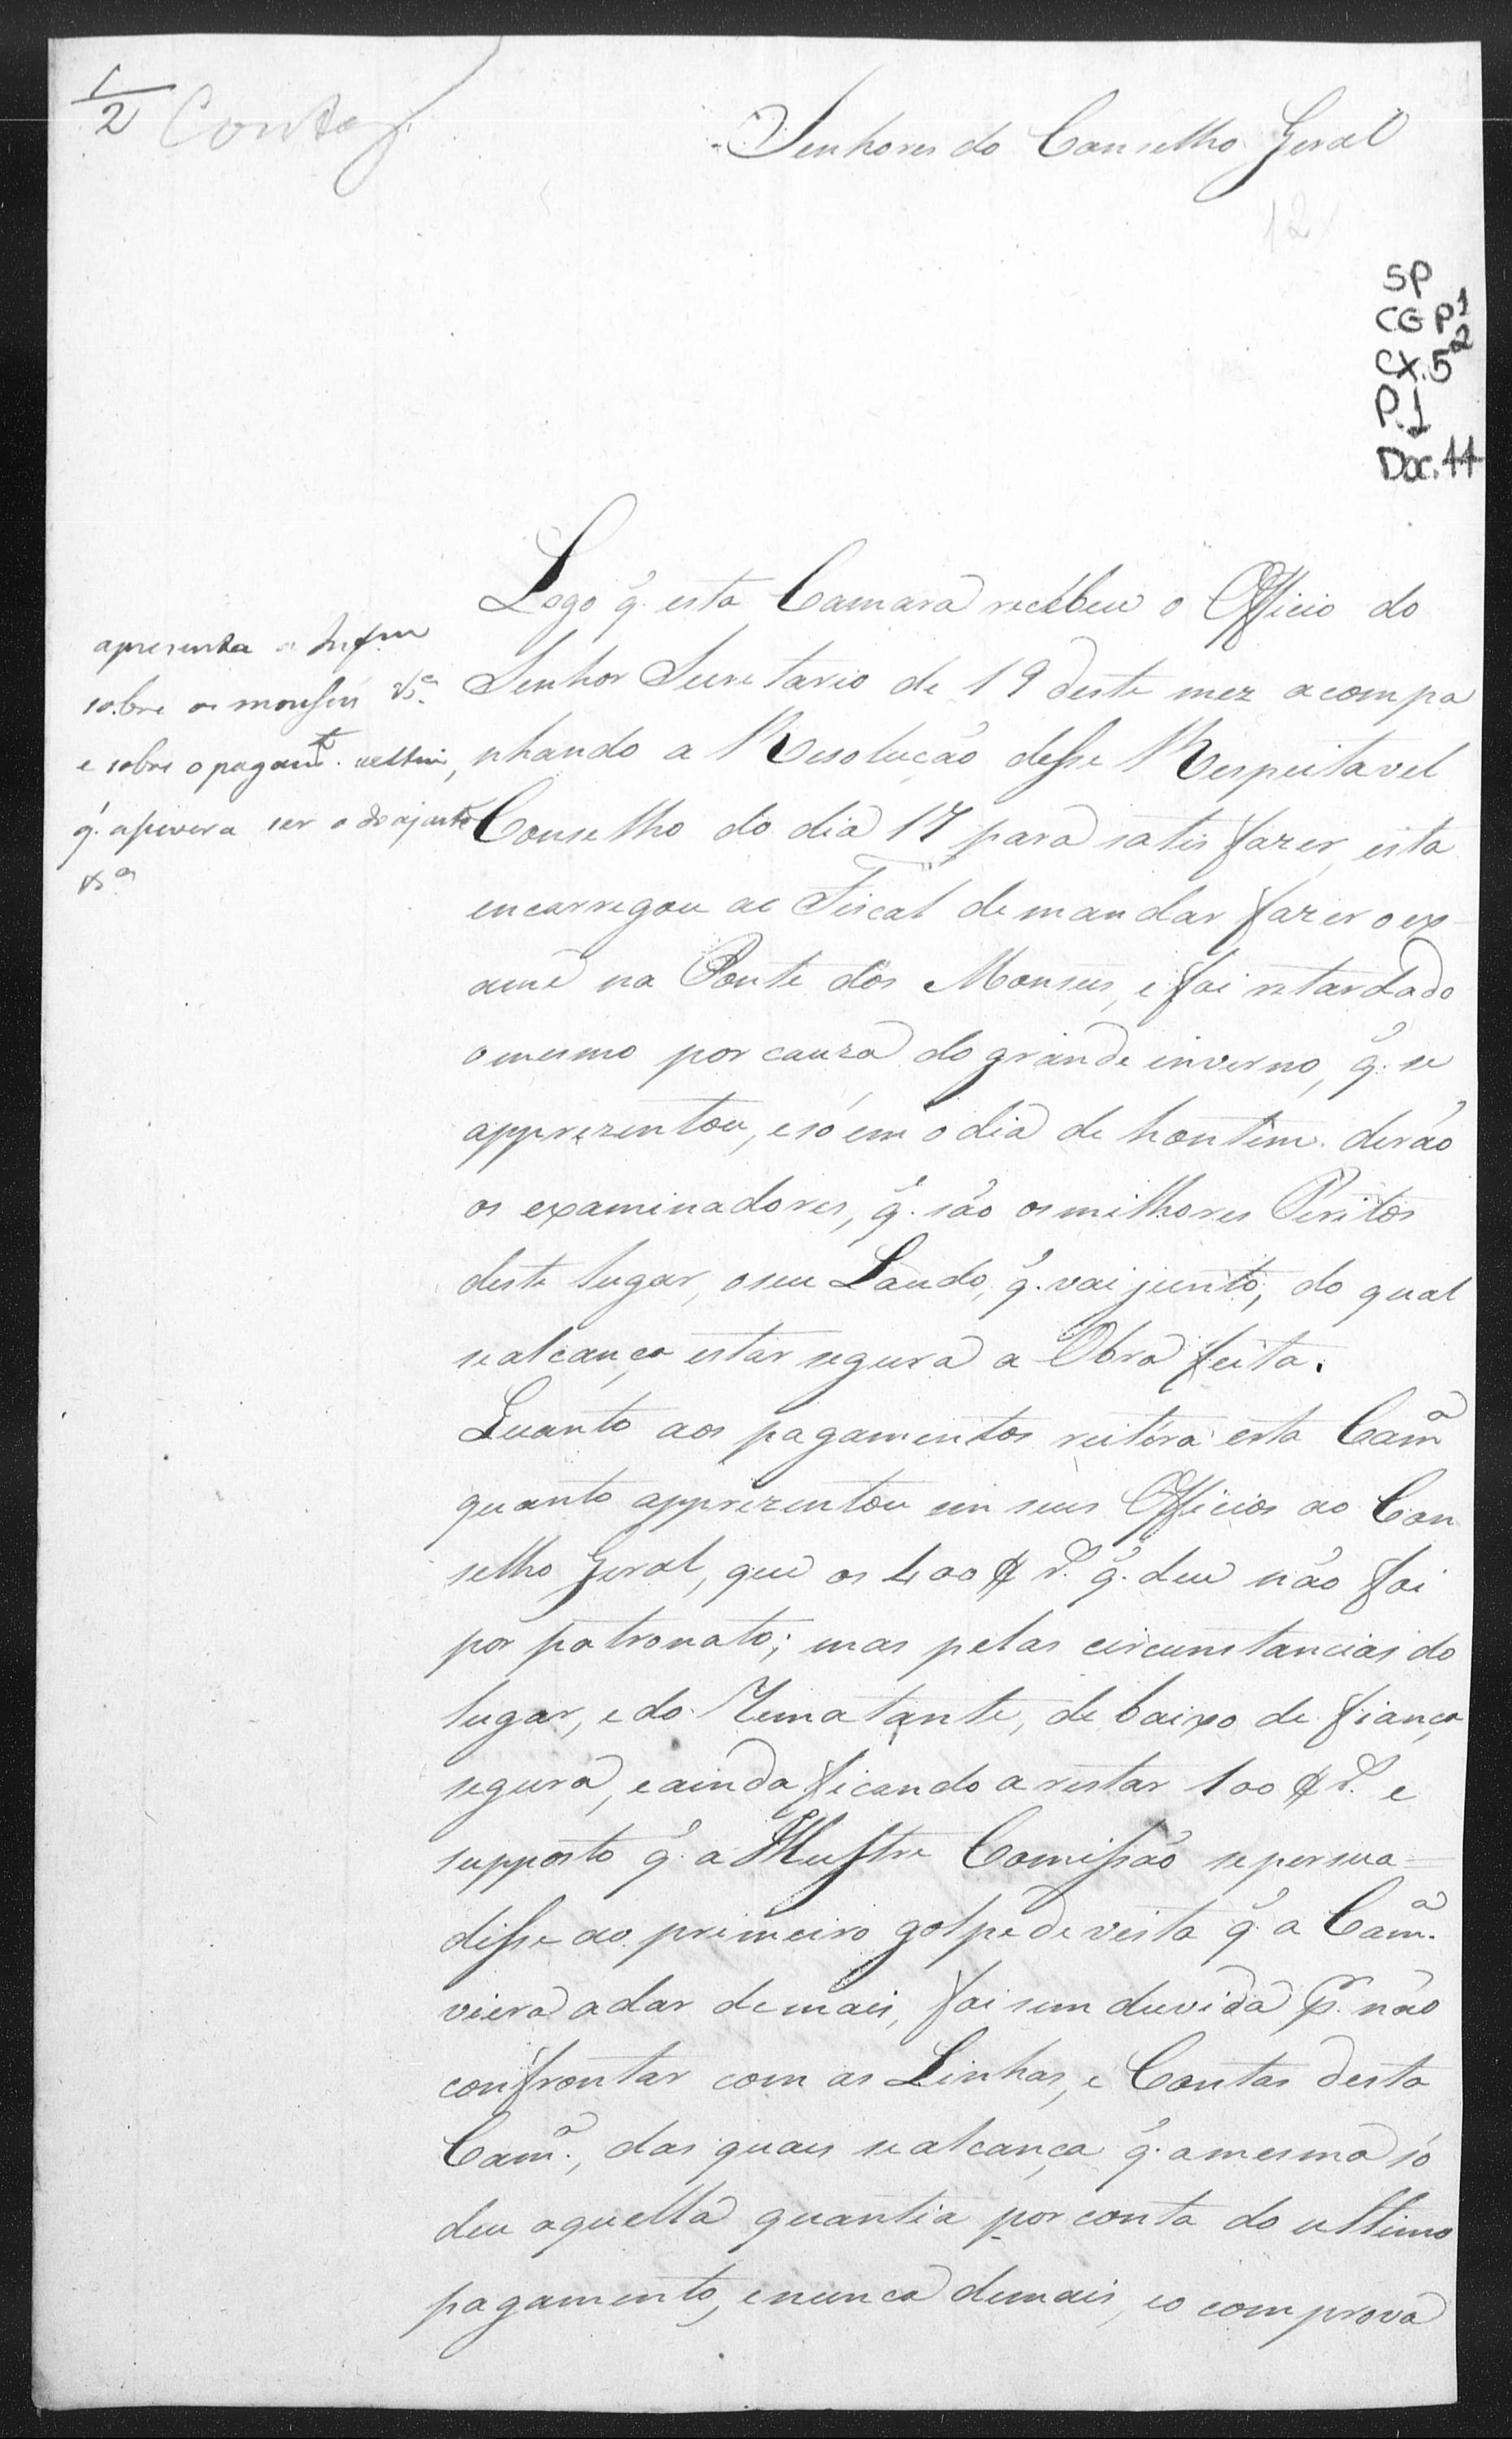 1/2 Contas
Senhores do Conselho Geral
12
SP
CG P1
CX. 5 2
P.1
Doc. 44
apresenta a Inf.m
sobre os
e sobre o pagam.to
q.
Logo q. esta Camara recebeu o Officio do
Senhor Secretario de 19 deste mez acompa
nhando a Resolução desse Respeitavel
Conselho do dia 17 para satisfazer, esta
encarregou ao Fiscal de mandar fazer o ex-
ame na Ponte dos Monsus, e foi retardado
o mesmo por cauza do grande inverno, q. se
apprezentou, e só em o dia de hontem derão
os examinadores, q. são os milhores Peritos
deste lugar, o seu Laudo, q. vai junto, do qual
se alcança estar segura a Obra feita.
Quanto aos pagamentos reitéra esta Cam.a
quanto apprezentou em seus Officios ao Con
selho Geral, que os 400$ r. q. deu não foi
por patronato; mas pelas circunstancias do
lugar, e do Rematante, de baixo de fiança
segura, e ainda ficando a restar 100$ r. e
supposto q. a Illustre Comissão se persua-
disse ao primeiro golpe de vista q. a Cam.a
viera a dar de mais, foi sem duvida p.r não
confrontar com as Linhas, e Contas desta
Cam.a, das quaes se alcança q. a mesma só
deu aquella quantia por conta do ultimo
pagamento, e nunca demais, e o comprova